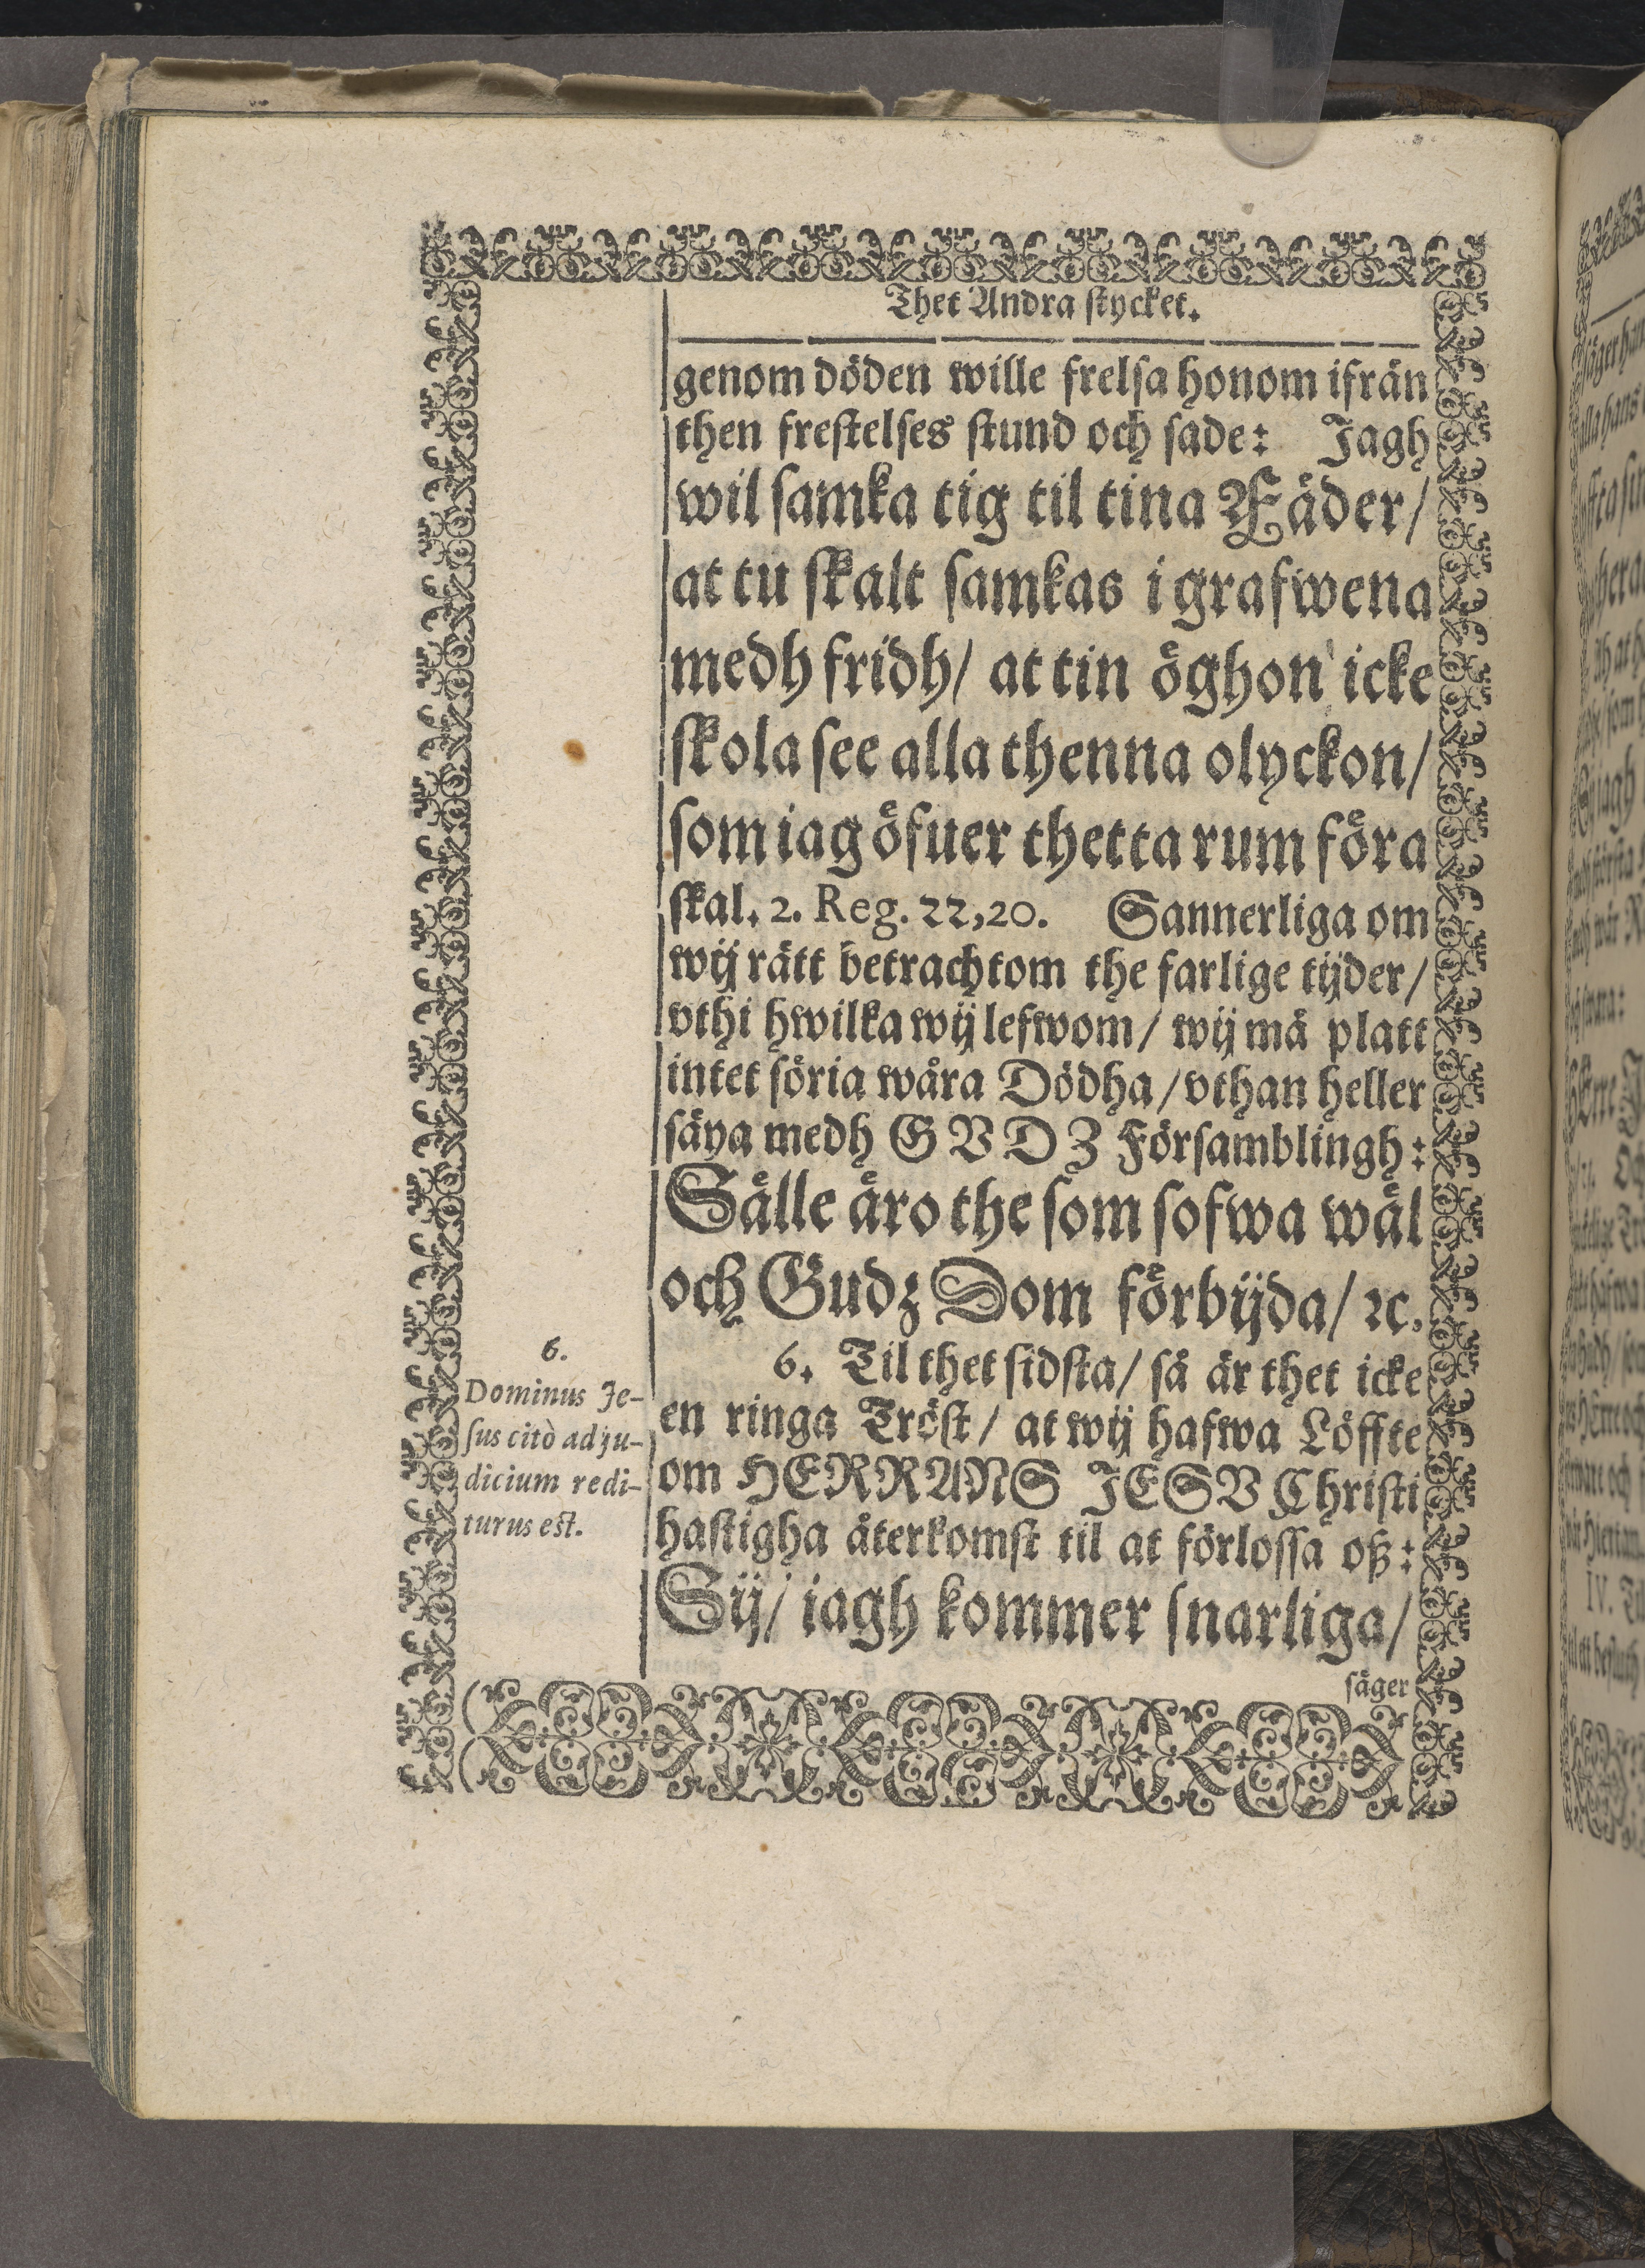 Thet Andra stycket.
genom döden wille frelsa honom ifrån
then frestelses stund och sade: Jagh
wil samka tig til tina Fäder/
at tu skalt samkas i grafwena
medh fridh/ at tin öghon icke
skola see alla thenna olyckon/
som iag öfuer thetta rum föra
skal. 2. Reg. 22,20. Sannerliga om
wij rätt betrachtom the farlige tijder/
vthi hwilka wij lefwom/ wij må platt
intet söria wåra Dödha/ vthan heller
säya medh GVDZ Församblingh:
Sälle äro the som sofwa wäl
och Gudz Dom förbijda/ ꝛc.
6.
6. Til thet sidsta/ så är thet icke
Dominus Je-
en ringa Tröst/ at wij hafwa Löffte
sus citò ad ju-
om HERRANS JESV Christi
dicium redi-
hastigha återkomst til at förlossa oß:
turus est.
Sij/ iagh kommer snarliga/
säger